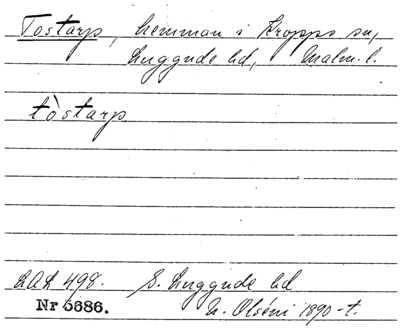 Tostarp, hemman i Kropps sn,
Luggude hd, Malm. l.
tòstarp
LAL 498. S. Luggude hd
Nr 5686. N. Olséni 1890-t.